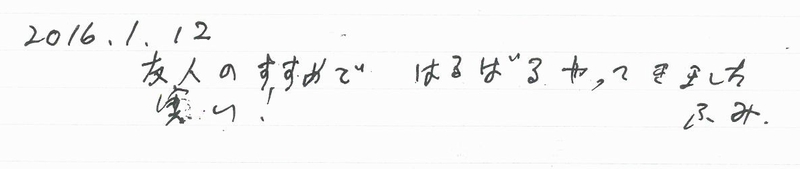 2016.1.12
友人のすすめで はるばるやってきました
寒い! ふみ.